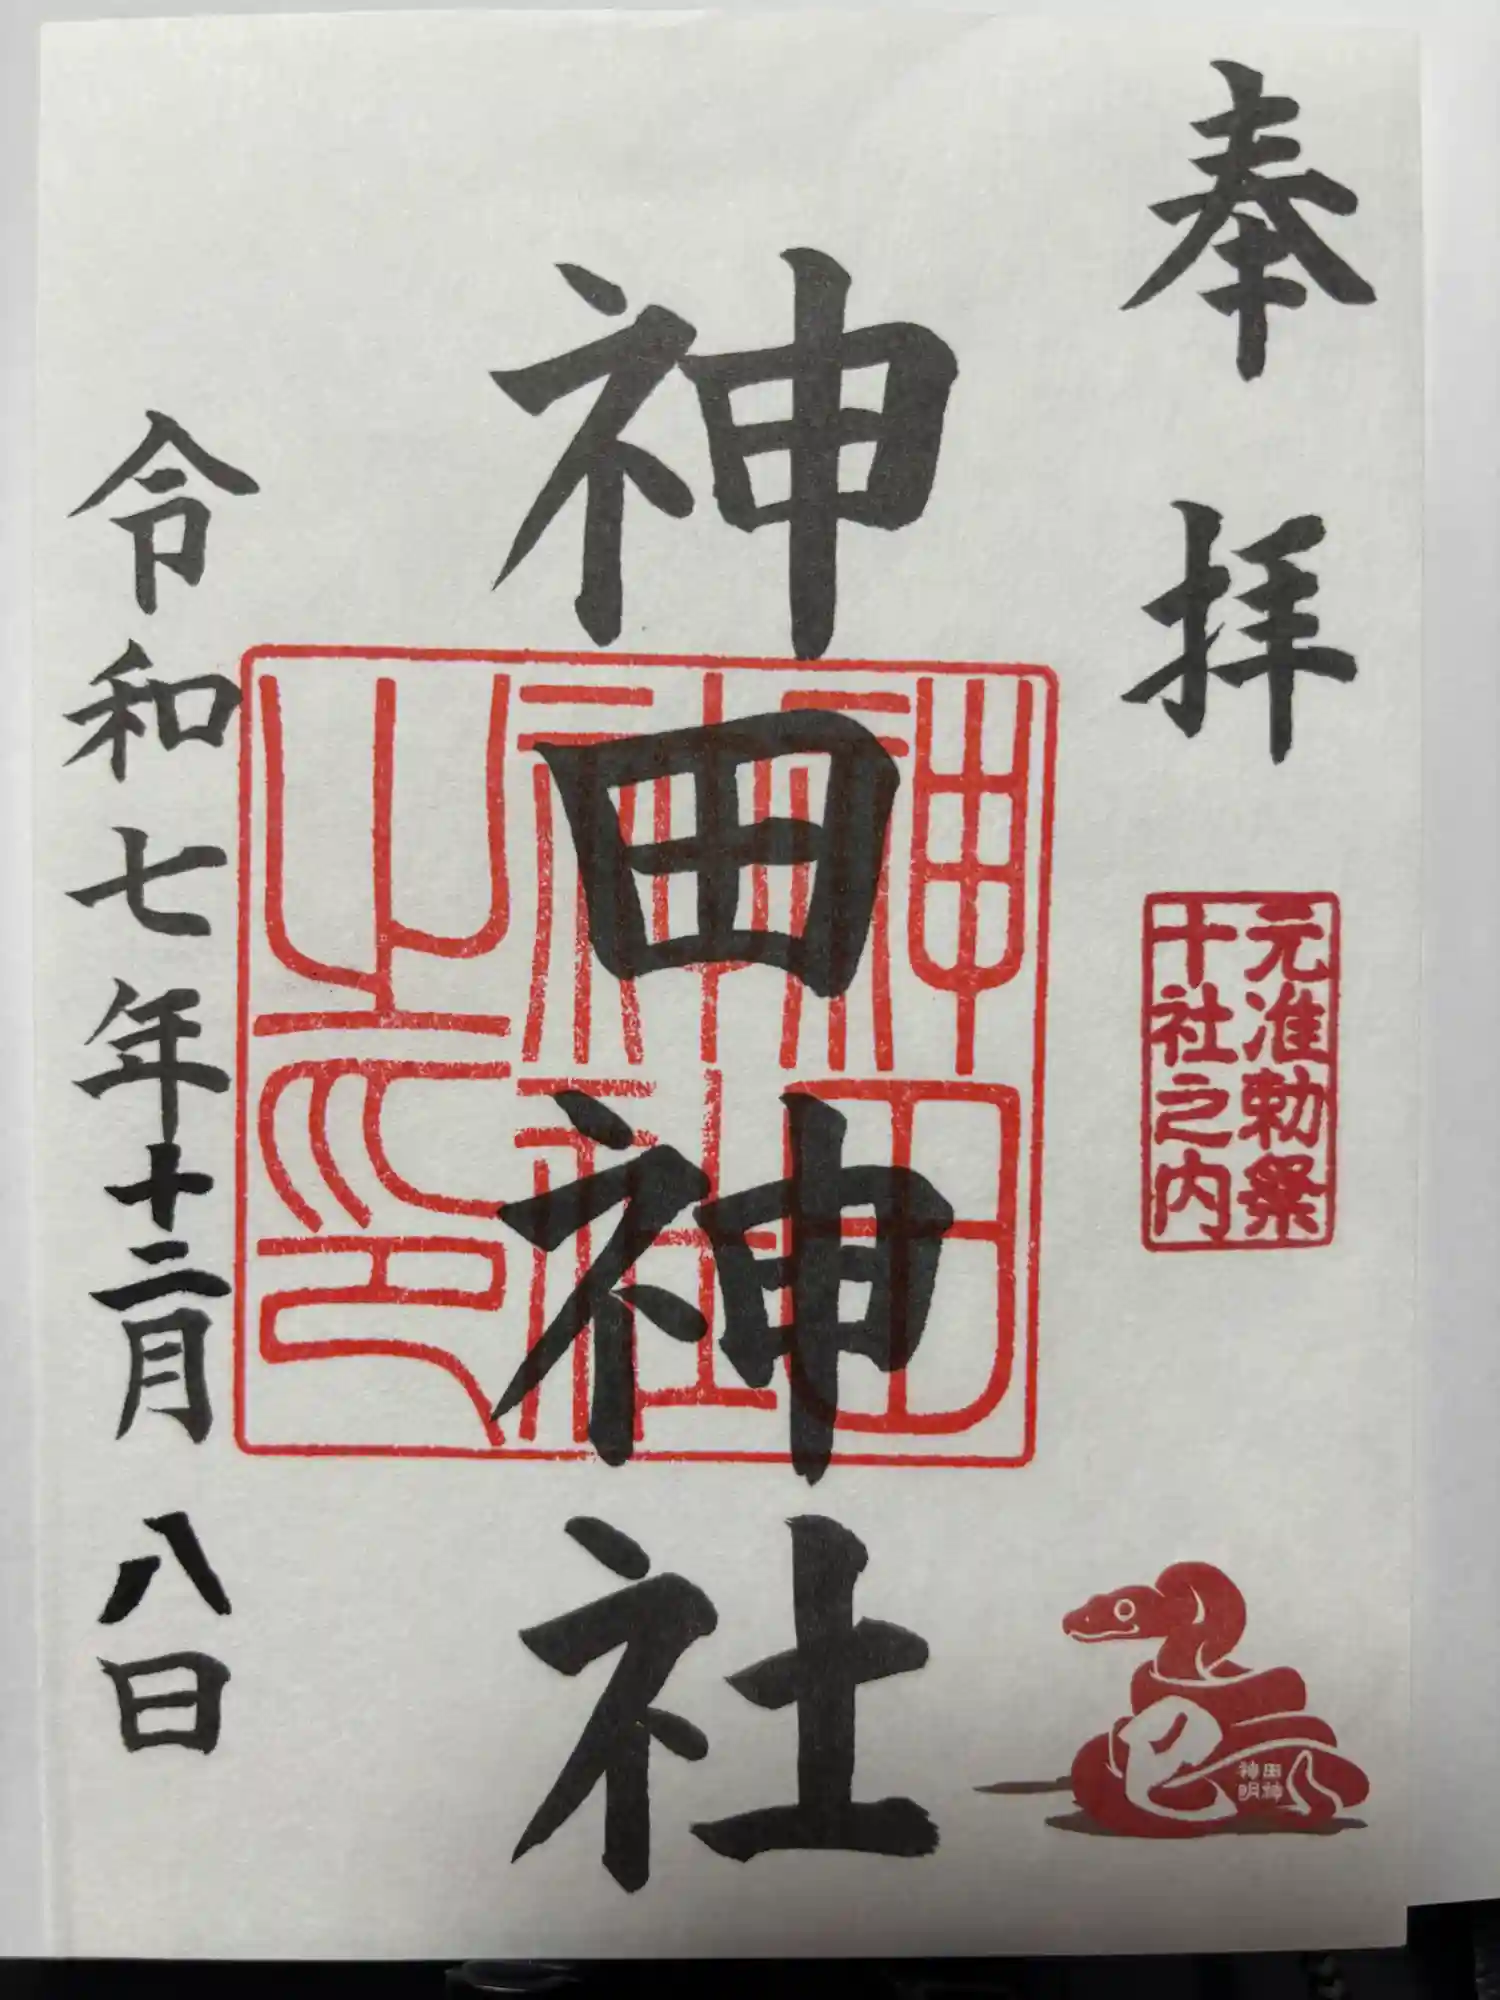 奉拝
元准勅祭
十社之内
巳
神田神
明
神田神社
神田
神社
之印
令和七年十二月八日